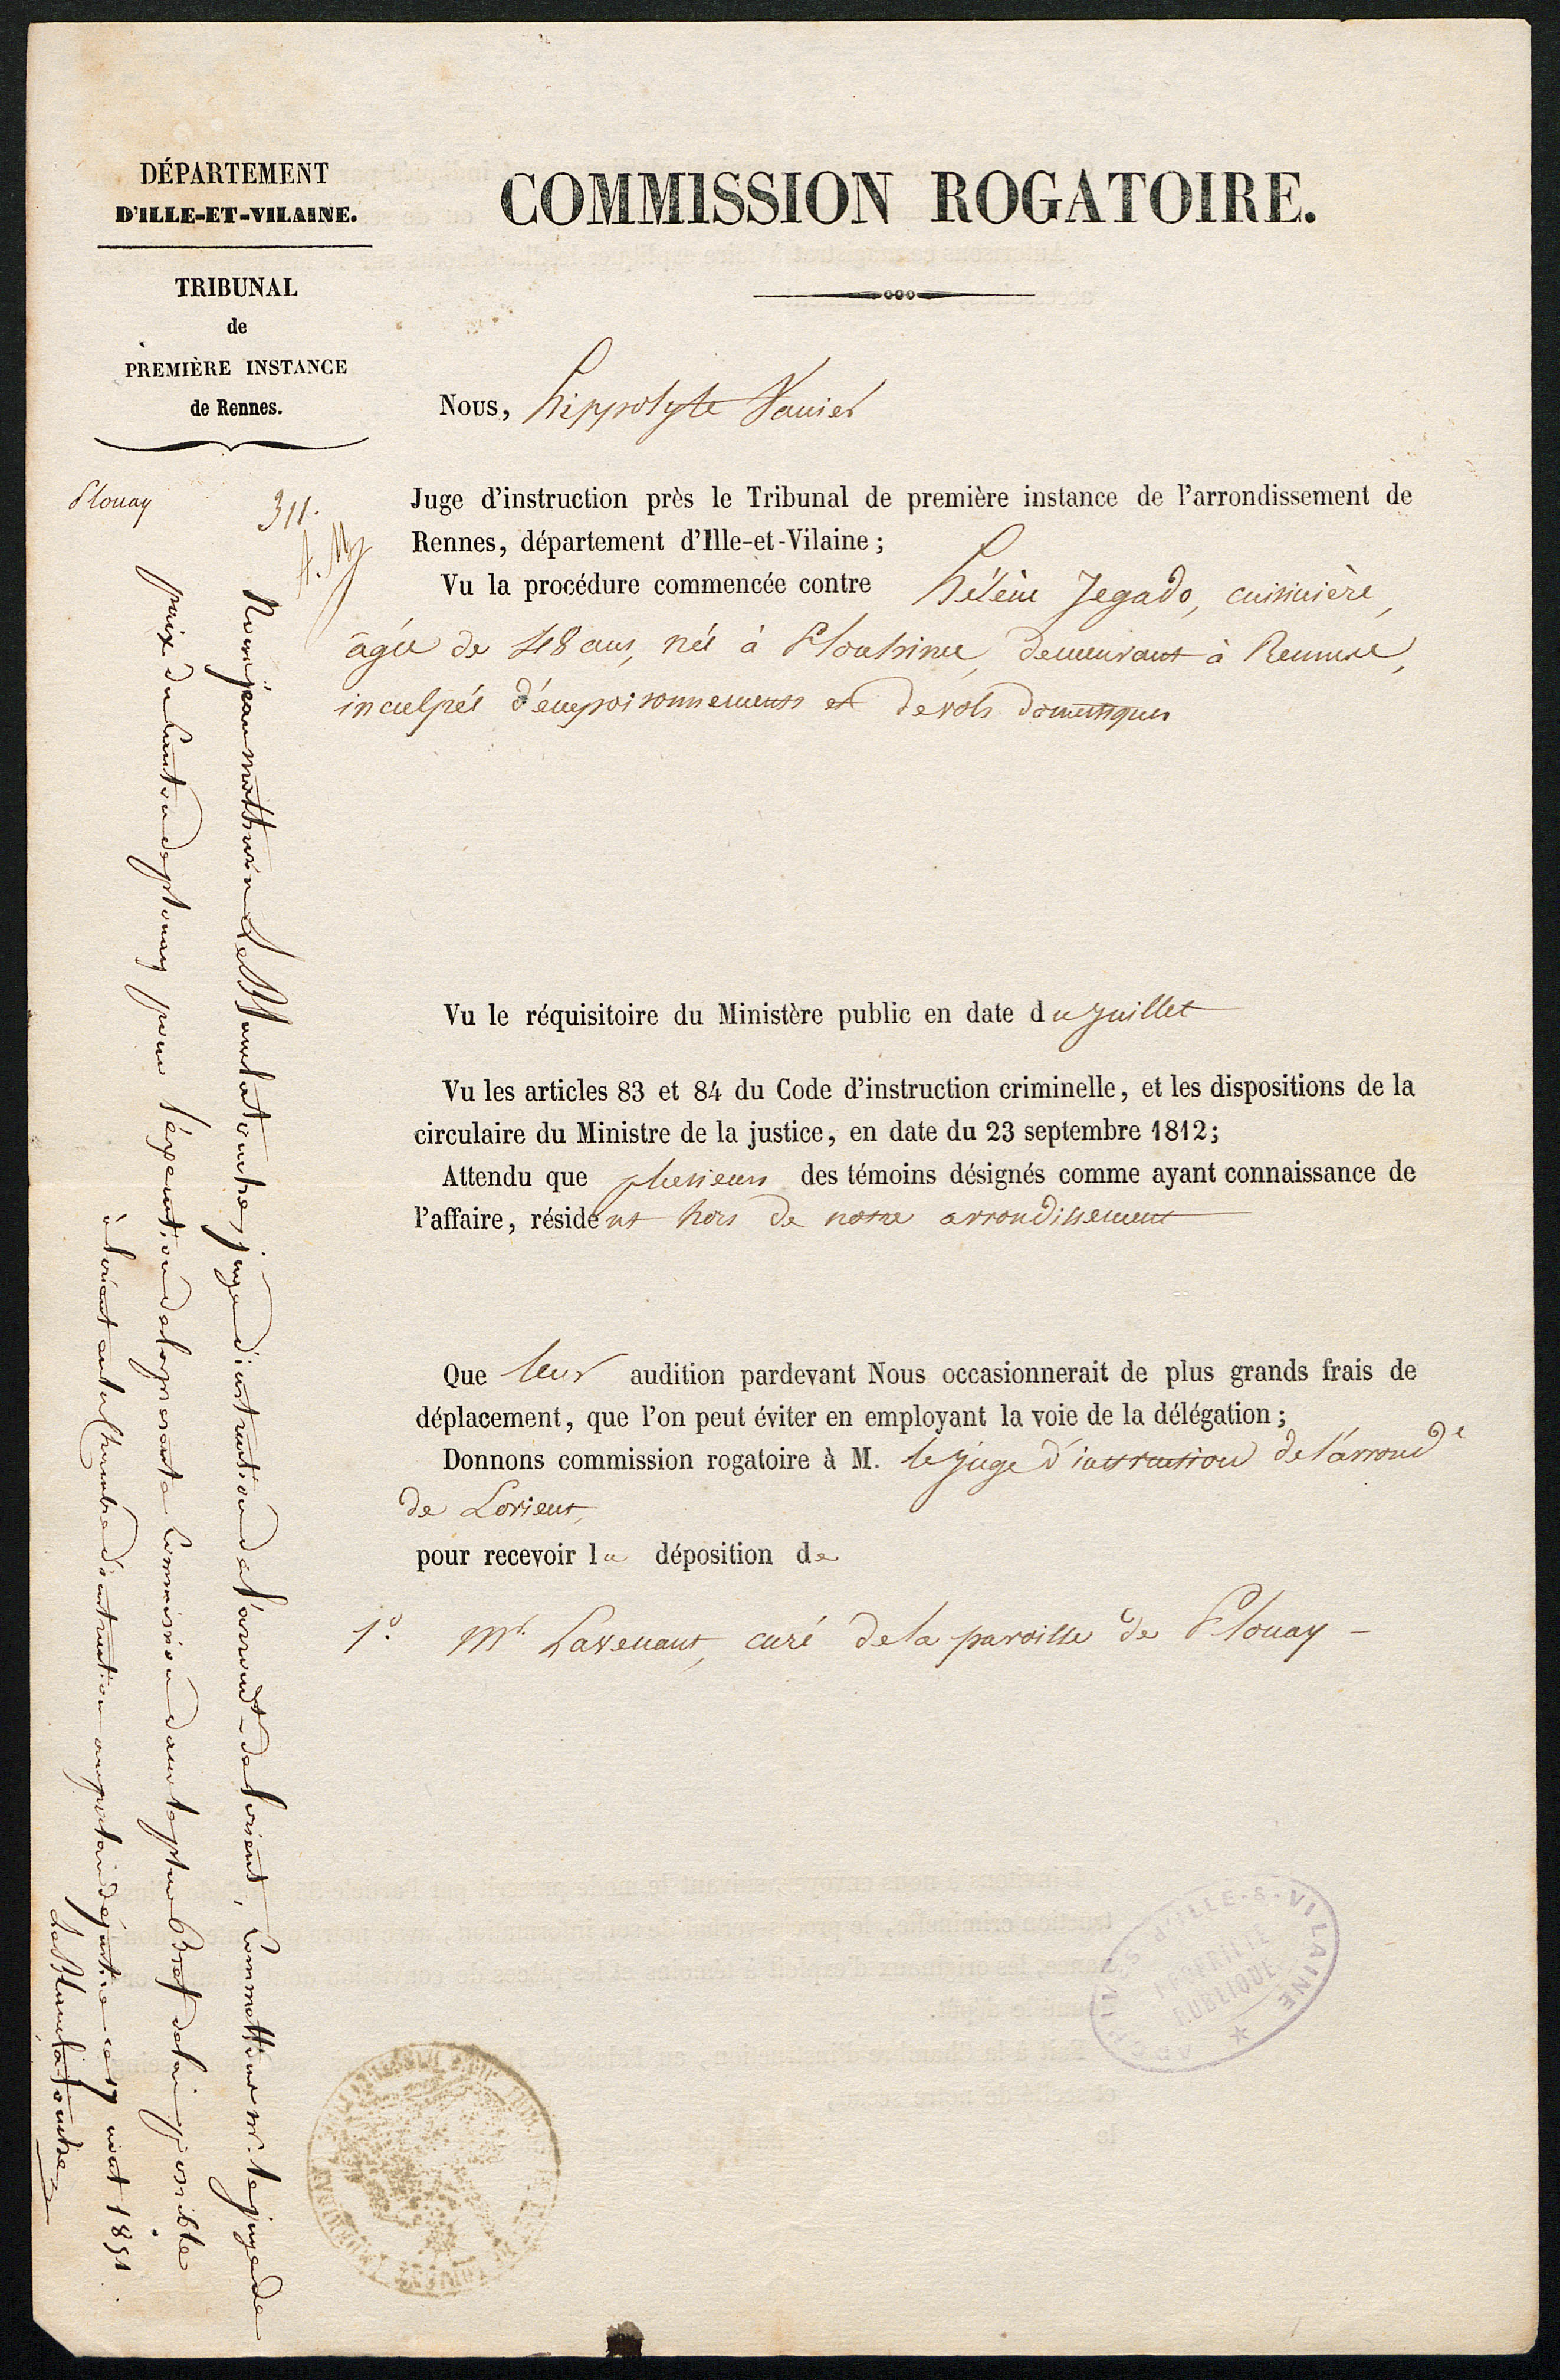 DÉPARTEMENT
D'ILLE-ET-VILAINE.
TRIBUNAL
de
PREMIÈRE INSTANCE
de Rennes.
COMMISSION ROGATOIRE.
Nous, hippolyte Vanier
Plouay
311.
Juge d'instruction près le Tribunal de première instance de l'arrondissement de
Rennes, département d'Ille-et-Vilaine;
Vu la procédure commencée contre hélène Jegado, cuisinière,
âgée de 48 ans, née à Plouhinec, demeurant à Rennes,
inculpée d'empoisonnements et de vols domestiques
Vu le réquisitoire du Ministère public en date du juillet
Vu les articles 83 et 84 du Code d'instruction criminelle, et les dispositions de la
circulaire du Ministre de la justice, en date du 23 septembre 1812;
Attendu que plusieurs des témoins désignés comme ayant connaissance de
l'affaire, résident hors de notre arrondissement
Que leur audition pardevant Nous occasionnerait de plus grands frais de
déplacement, que l'on peut éviter en employant la voie de la délégation;
Donnons commission rogatoire à M. le juge d'instruction de l'arrond^t
de Lorient,
pour recevoir la déposition de
1° Mr. Lavenant, curé de la paroisse de Plouay
Nous jean mathurin Le Blanchatouche, juge d'instruction de l'arrondt. de lorient, Commettons mr. le juge de
paix du Canton de plouay pour l'exécution de la présente Commission dans le plus Bref delai possible
à lorient en la Chambre d'instruction au palais de justice ce 17 août 1851.
Le Blanchatouche
ARCHIVES D'ILLE-&-VILAINE
PROPRIÉTÉ
PUBLIQUE